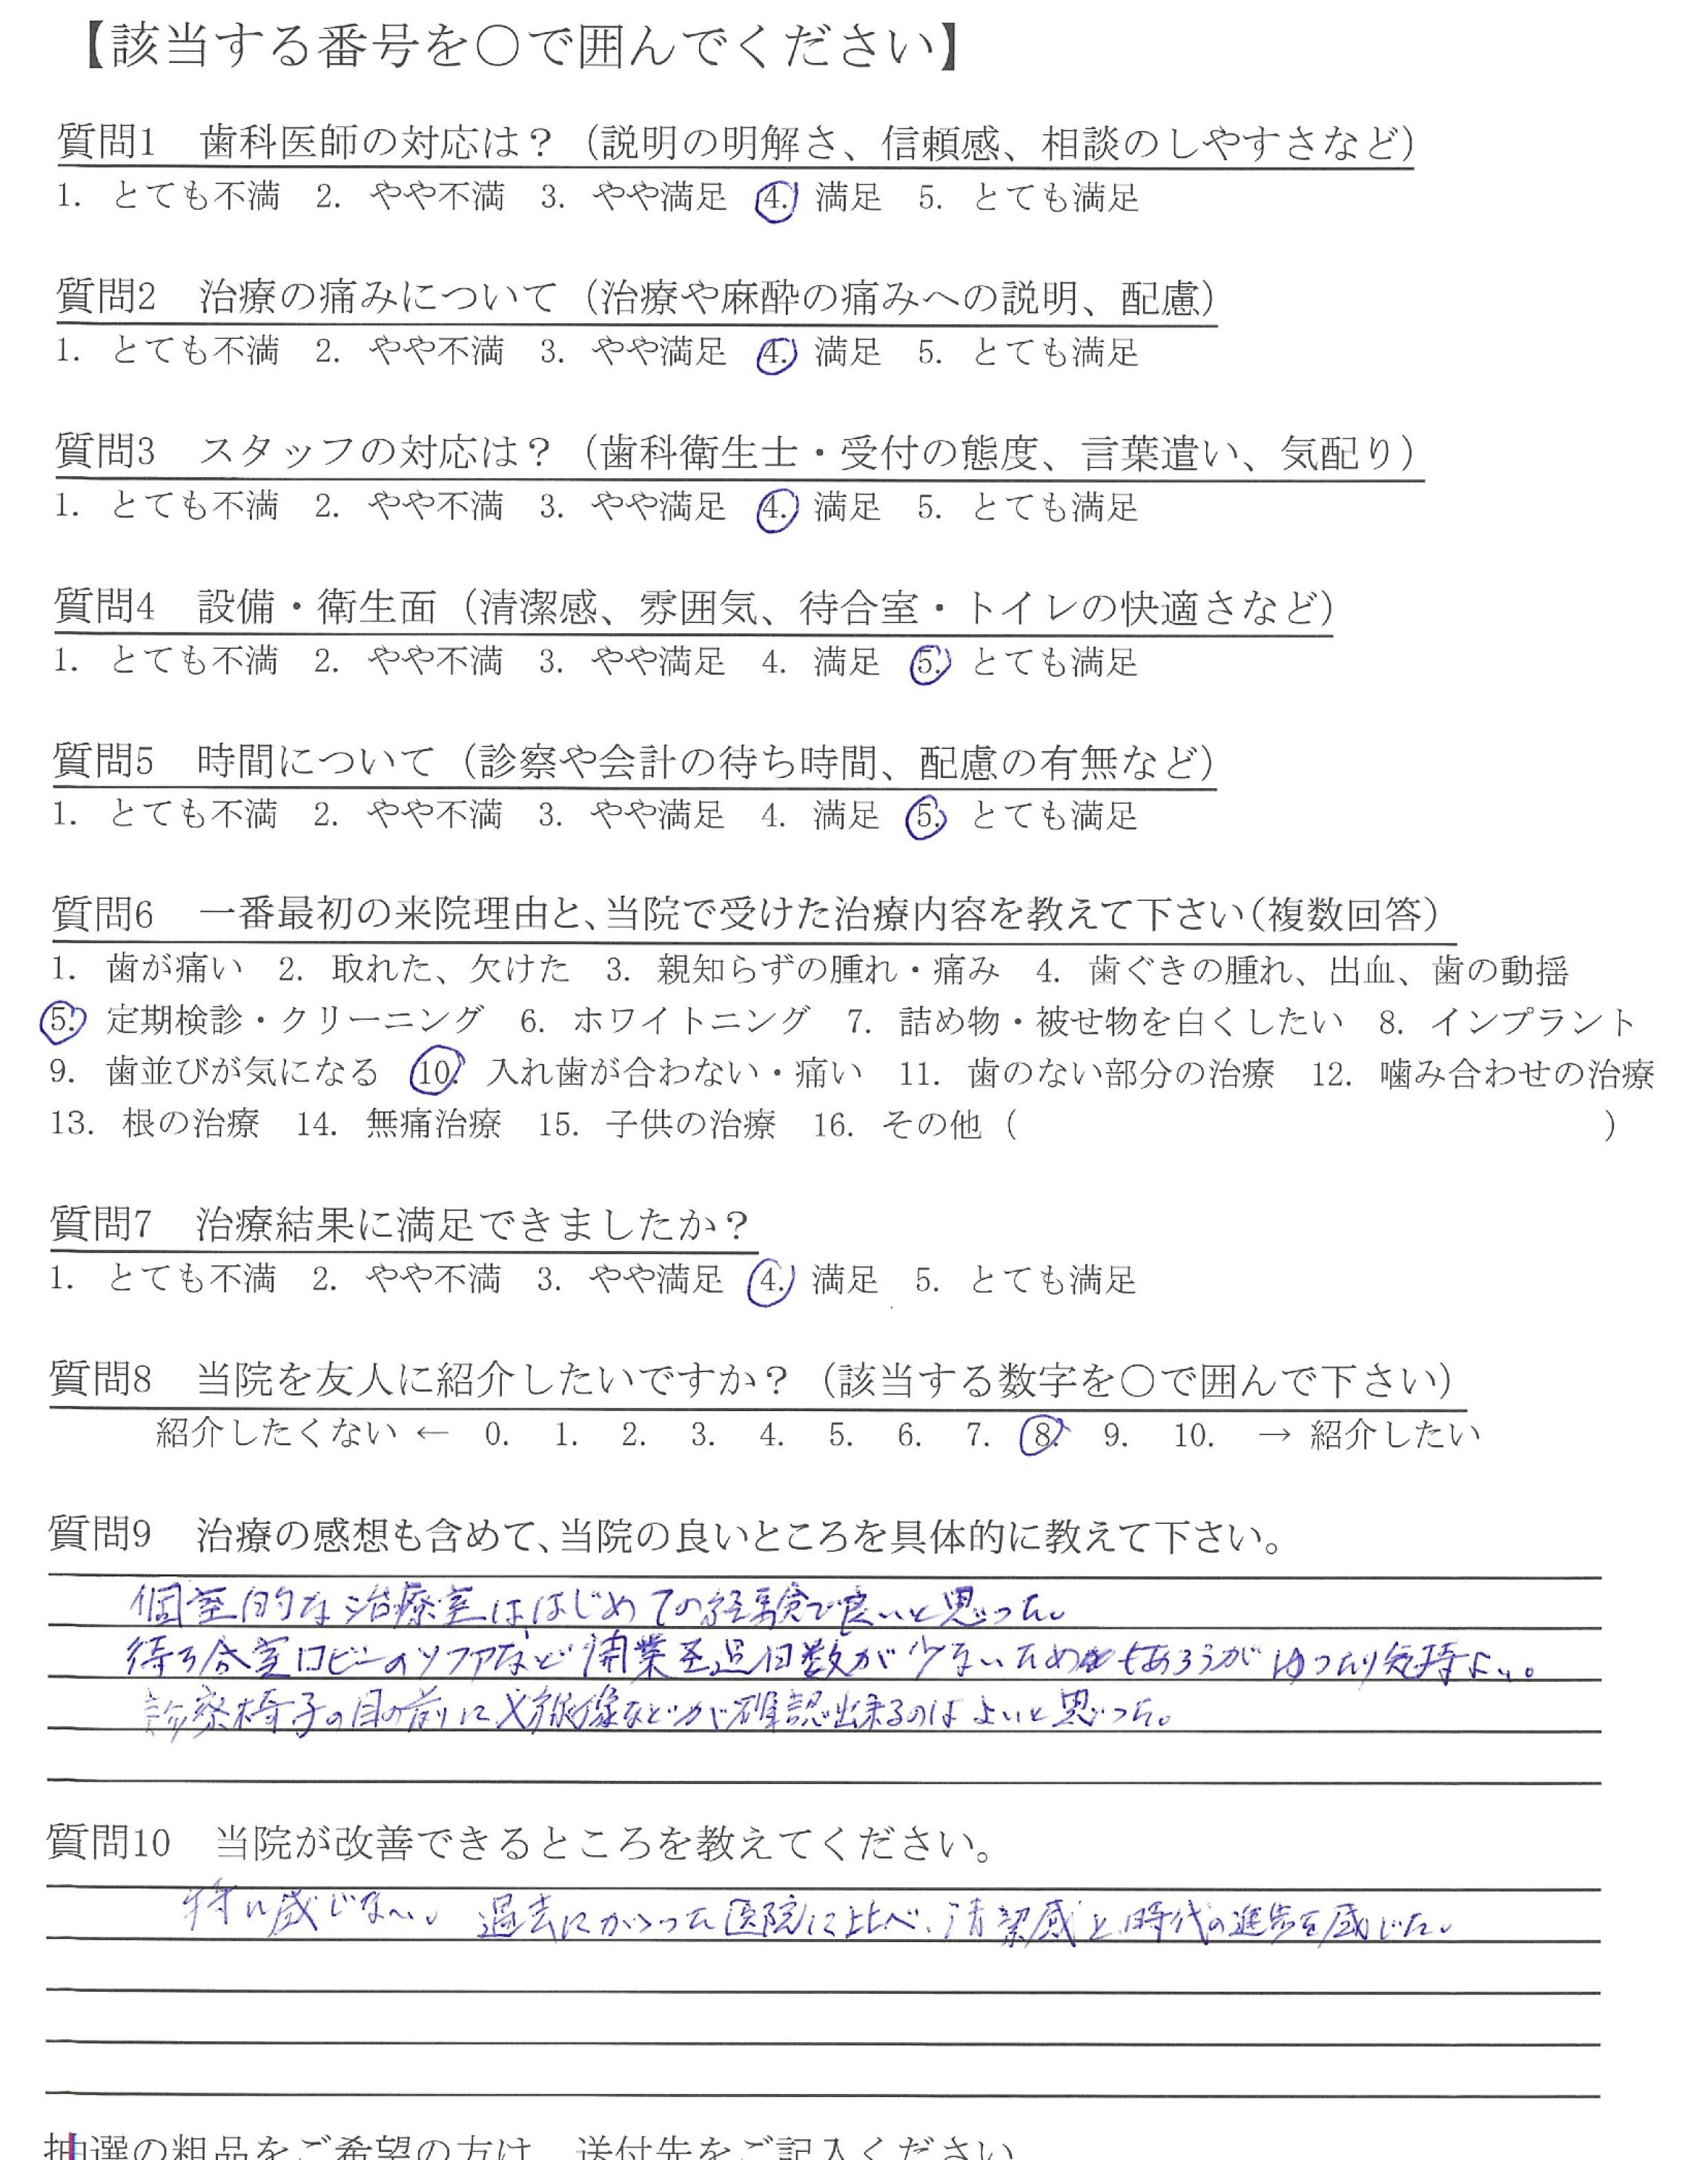 【該当する番号を○で囲んでください】
質問1 歯科医師の対応は？（説明の明解さ、信頼感、相談のしやすさなど）
1. とても不満 2. やや不満 3. やや満足 4. 満足 5. とても満足
質問2 治療の痛みについて（治療や麻酔の痛みへの説明、配慮）
1. とても不満 2. やや不満 3. やや満足 4. 満足 5. とても満足
質問3 スタッフの対応は？（歯科衛生士・受付の態度、言葉遣い、気配り）
1. とても不満 2. やや不満 3. やや満足 4. 満足 5. とても満足
質問4 設備・衛生面（清潔感、雰囲気、待合室・トイレの快適さなど）
1. とても不満 2. やや不満 3. やや満足 4. 満足 5. とても満足
質問5 時間について（診察や会計の待ち時間、配慮の有無など）
1. とても不満 2. やや不満 3. やや満足 4. 満足 5. とても満足
質問6 一番最初の来院理由と、当院で受けた治療内容を教えて下さい（複数回答）
1. 歯が痛い 2. 取れた、欠けた 3. 親知らずの腫れ・痛み 4. 歯ぐきの腫れ、出血、歯の動揺
5. 定期検診・クリーニング 6. ホワイトニング 7. 詰め物・被せ物を白くしたい 8. インプラント
9. 歯並びが気になる 10. 入れ歯が合わない・痛い 11. 歯のない部分の治療 12. 噛み合わせの治療
13. 根の治療 14. 無痛治療 15. 子供の治療 16. その他（ ）
質問7 治療結果に満足できましたか？
1. とても不満 2. やや不満 3. やや満足 4. 満足 5. とても満足
質問8 当院を友人に紹介したいですか？（該当する数字を○で囲んで下さい）
紹介したくない ← 0. 1. 2. 3. 4. 5. 6. 7. 8. 9. 10. → 紹介したい
質問9 治療の感想も含めて、当院の良いところを具体的に教えて下さい。
個室的な治療室は、はじめての経験で良いと思った。
待ち合室ロビーのソファなど開業日数が少ないためもあろうがゆったり気持よい。
診察椅子の目の前に映像などが確認出来るのはよいと思った。
質問10 当院が改善できるところを教えてください。
特に感じない。過去にかかった医院に比べ、清潔感と時代の進歩を感じた。
抽選の粗品をご希望の方は、送付先をご記入ください